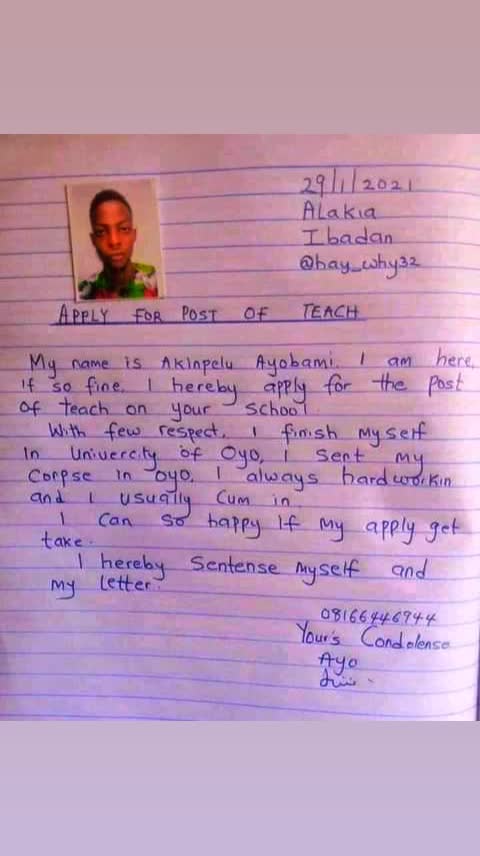 29/1/2021
Alakia
Ibadan
@hay_why32
APPLY FOR POST OF TEACH
My name is Akinpelu Ayobami. I am here,
if so fine. I hereby apply for the post
of teach on your school
With few respect, I finish myself
In Univercity of Oyo, I sent my
Corpse in oyo. I always hardworkin
and I usually Cum in.
I can so happy If my apply get
take.
I hereby Sentense myself and
my letter.
08166446944
Your's Condolense
Ayo